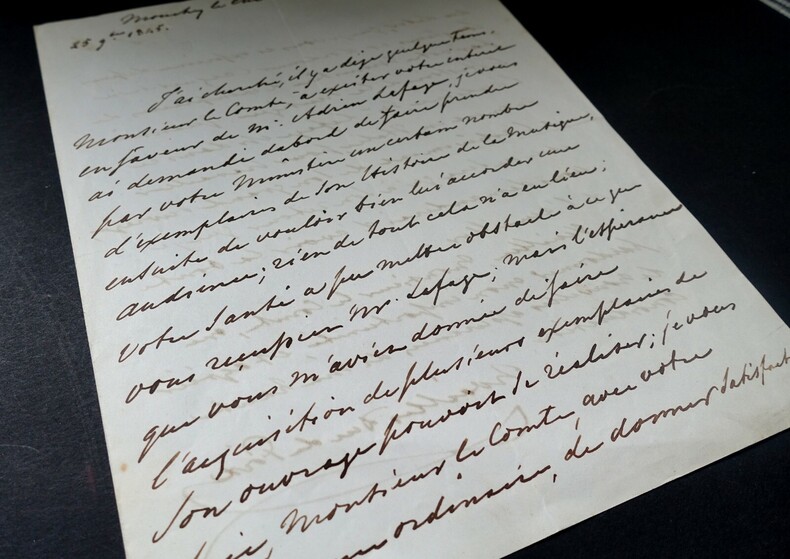 Mouchy le
25 9bre 1845.
J'ai cherché, il y a deja quelque tems,
Monsieur le Comte, a exciter votre intérêt
en faveur de Mr. Adrien Lafage, je vous
ai demandé dabord de faire prendre
par votre Ministère un certain nombre
d'exemplaires de son histoire de la Musique,
ensuite de vouloir bien lui accorder une
audience; rien de tout cela n'a eu lieu;
votre Santé a pu mettre obstacle à ce que
vous reçussiez Mr. Lafage; mais l'espérance
que vous m'aviez donnée de faire
l'acquisition de plusieurs exemplaires de
Son ouvrage pouvoit se réaliser; je vous
Monsieur le Comte, avec votre
ordinaire, de donner Satisfact